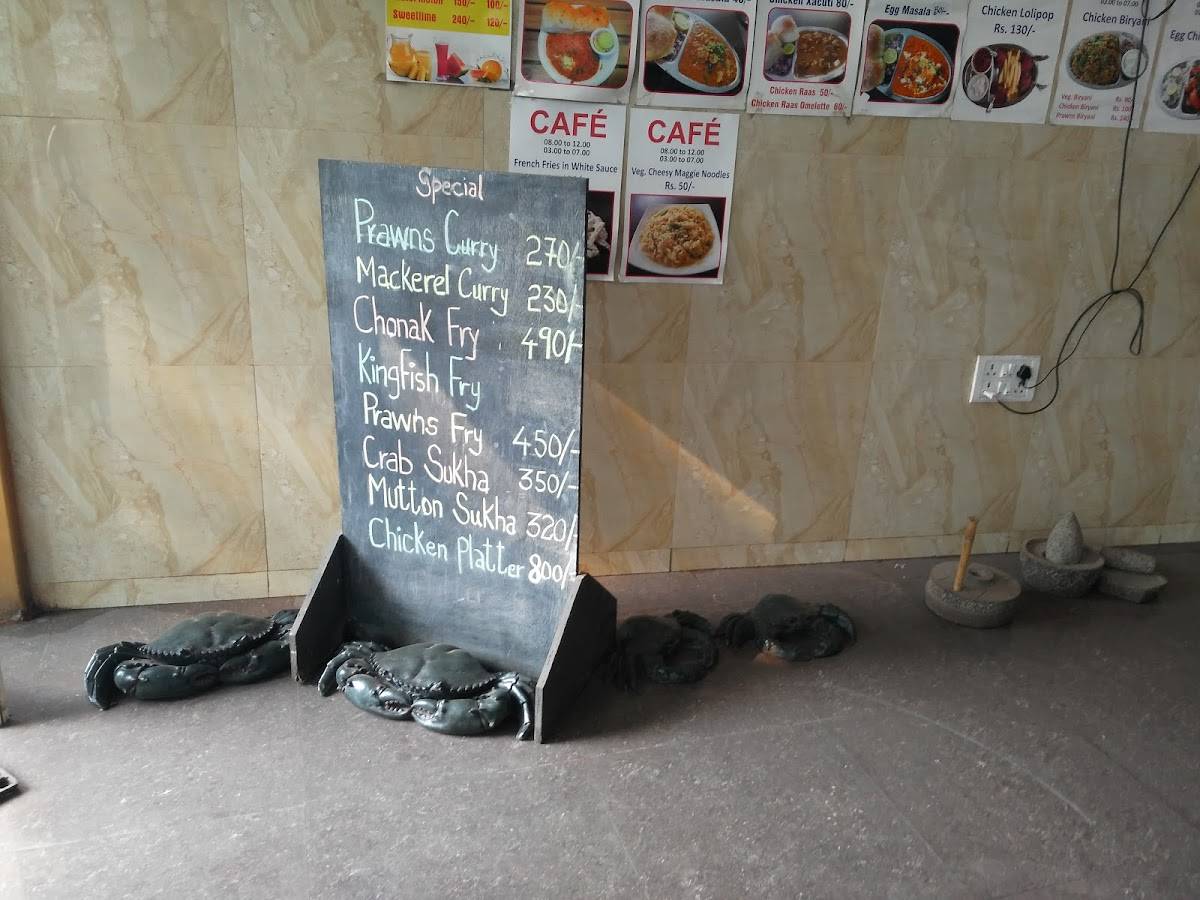 150/- 100/-
Sweetlime 240/- 120/-
Chicken Xacuti 80/-
Chicken Raas 50/-
Chicken Raas Omelette 60/-
Egg Masala 50/-
Chicken Lolipop
Rs. 130/-
03.00 to 07.00
Chicken Biryani
Veg. Biryani
Chicken Biryani
Prawns Biryani
CAFÉ
08.00 to 12.00
03.00 to 07.00
French Fries in White Sauce
CAFÉ
08.00 to 12.00
03.00 to 07.00
Veg. Cheesy Maggie Noodles
Rs. 50/-
Special
Prawns Curry 270/-
Mackerel Curry 230/-
Chonak Fry 490/-
Kingfish Fry
Prawns Fry 450/-
Crab Sukha 350/-
Mutton Sukha 320/-
Chicken Platter 800/-